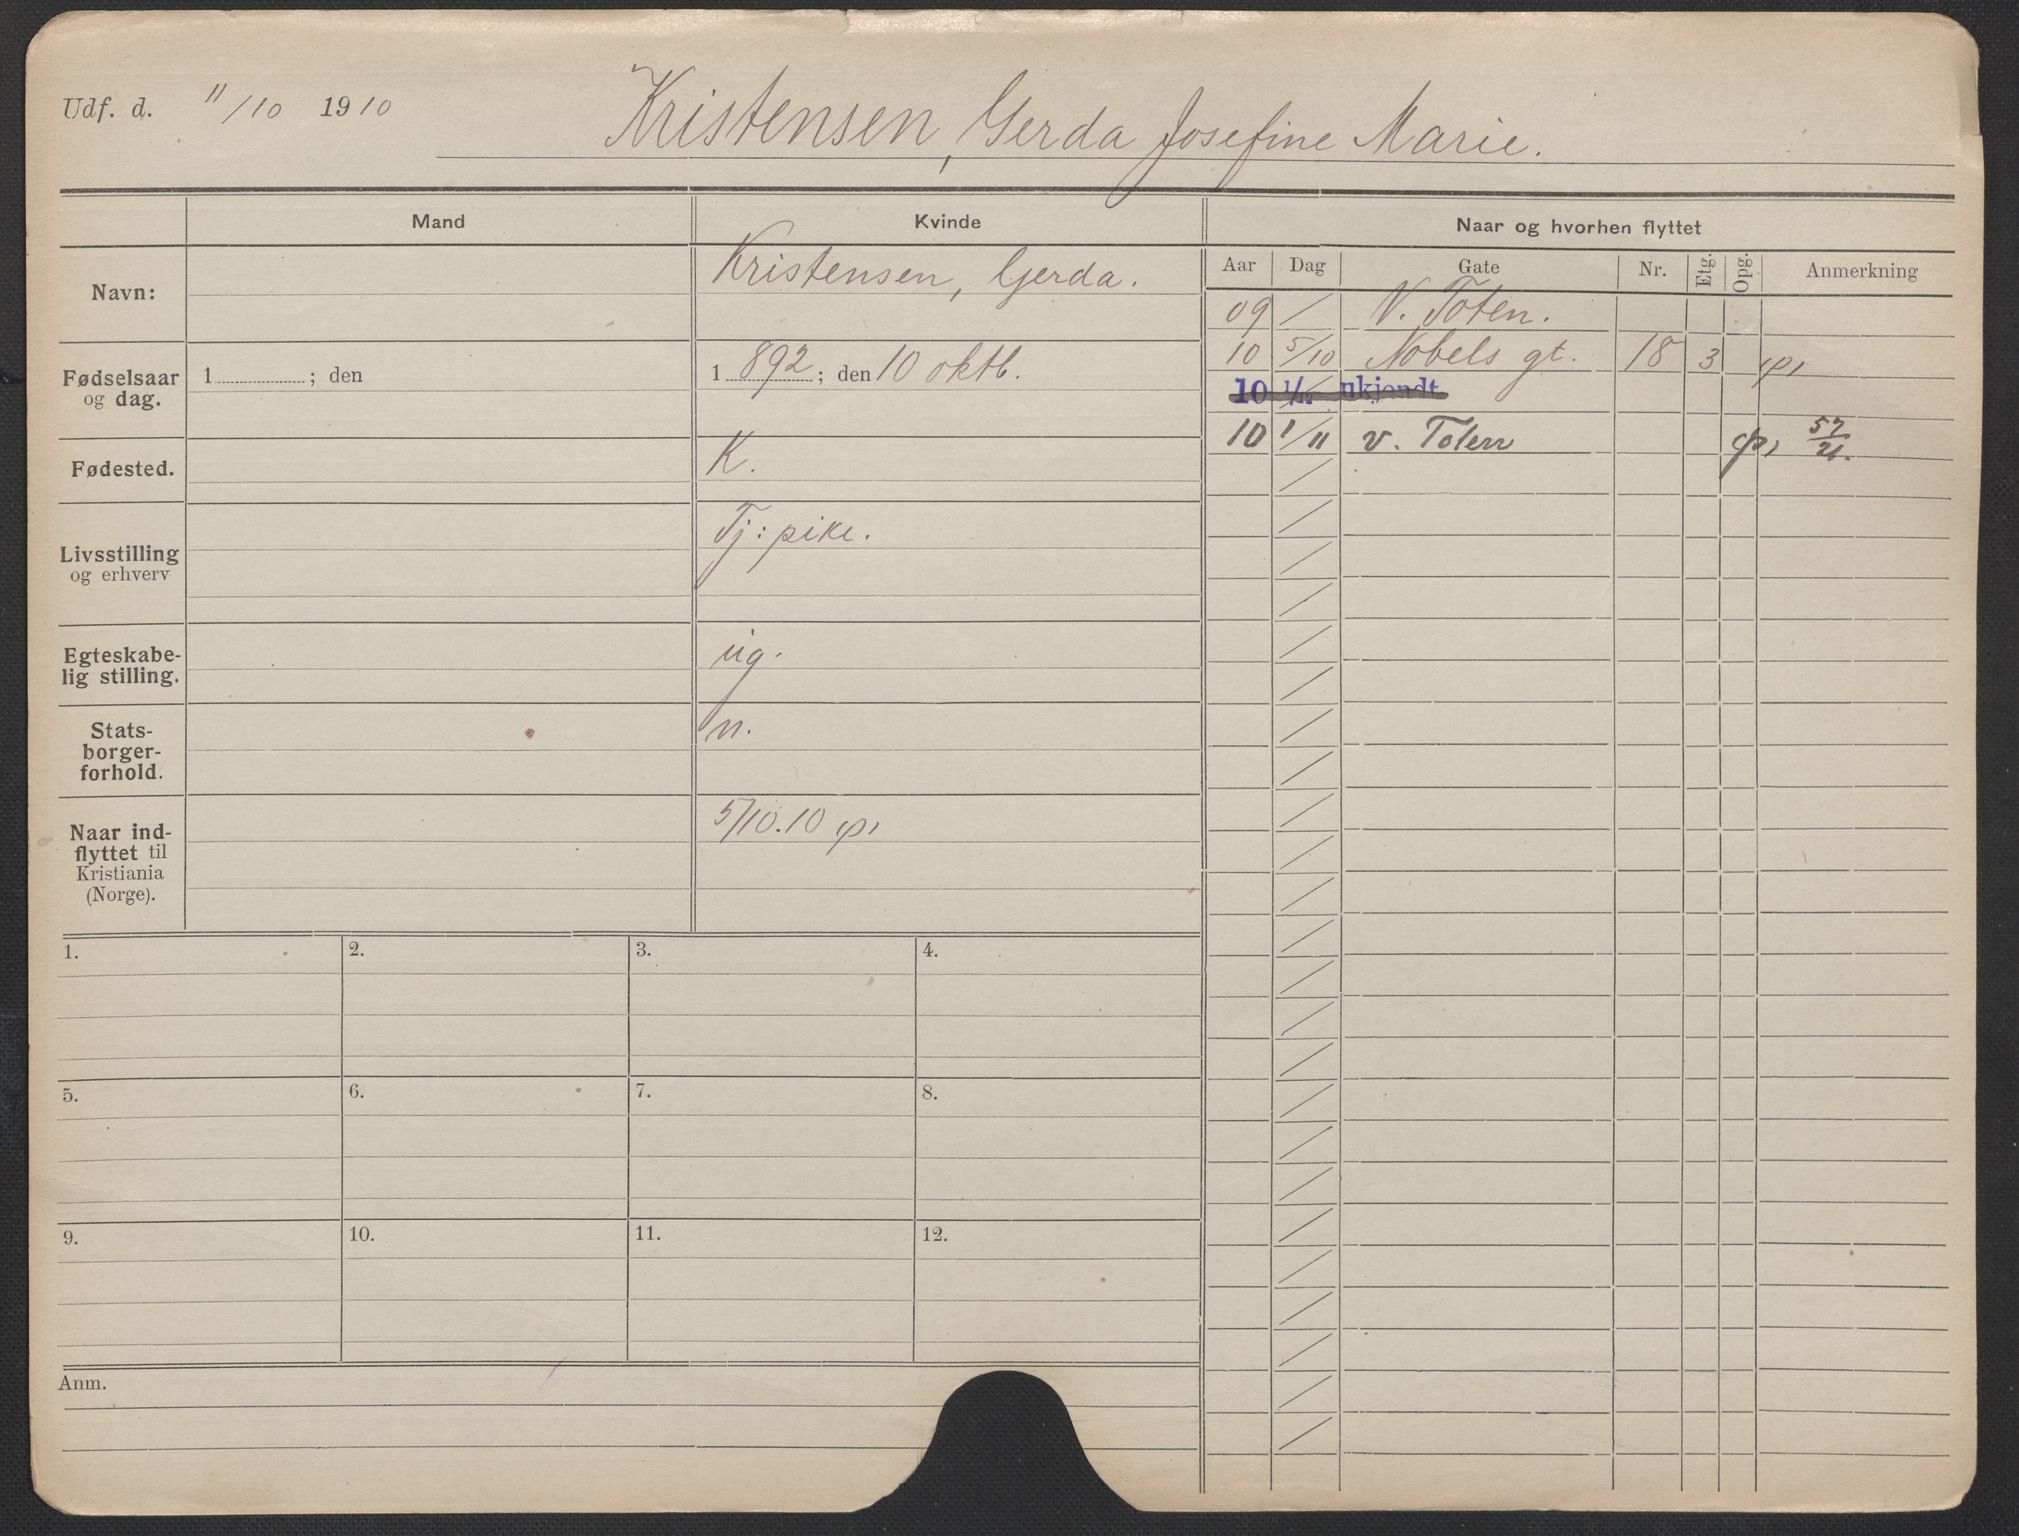 Udf. d. 11/10 1910 Kristensen, Gerda Josefine Marie.
Mand Kvinde Naar og hvorhen flyttet
Aar Dag Gate Nr. Etg. Opg. Anmerkning
Navn: Kristensen, Gerda.
09 / V. Toten.
10 5/10 Nobels gt. 18 3
Fødselsaar og dag. 1 ; den 1892 ; den 10 oktb.
10 1/12 ukjendt
10 1/11 v. Toten 57/21.
Fødested. K.
Livsstilling og erhverv Tj: pike.
Egteskabe-
lig stilling. ug.
Stats-
borger-
forhold. n.
Naar ind-
flyttet til
Kristiania
(Norge). 5/10.10
1. 2. 3. 4.
5. 6. 7. 8.
9. 10. 11. 12.
Anm.